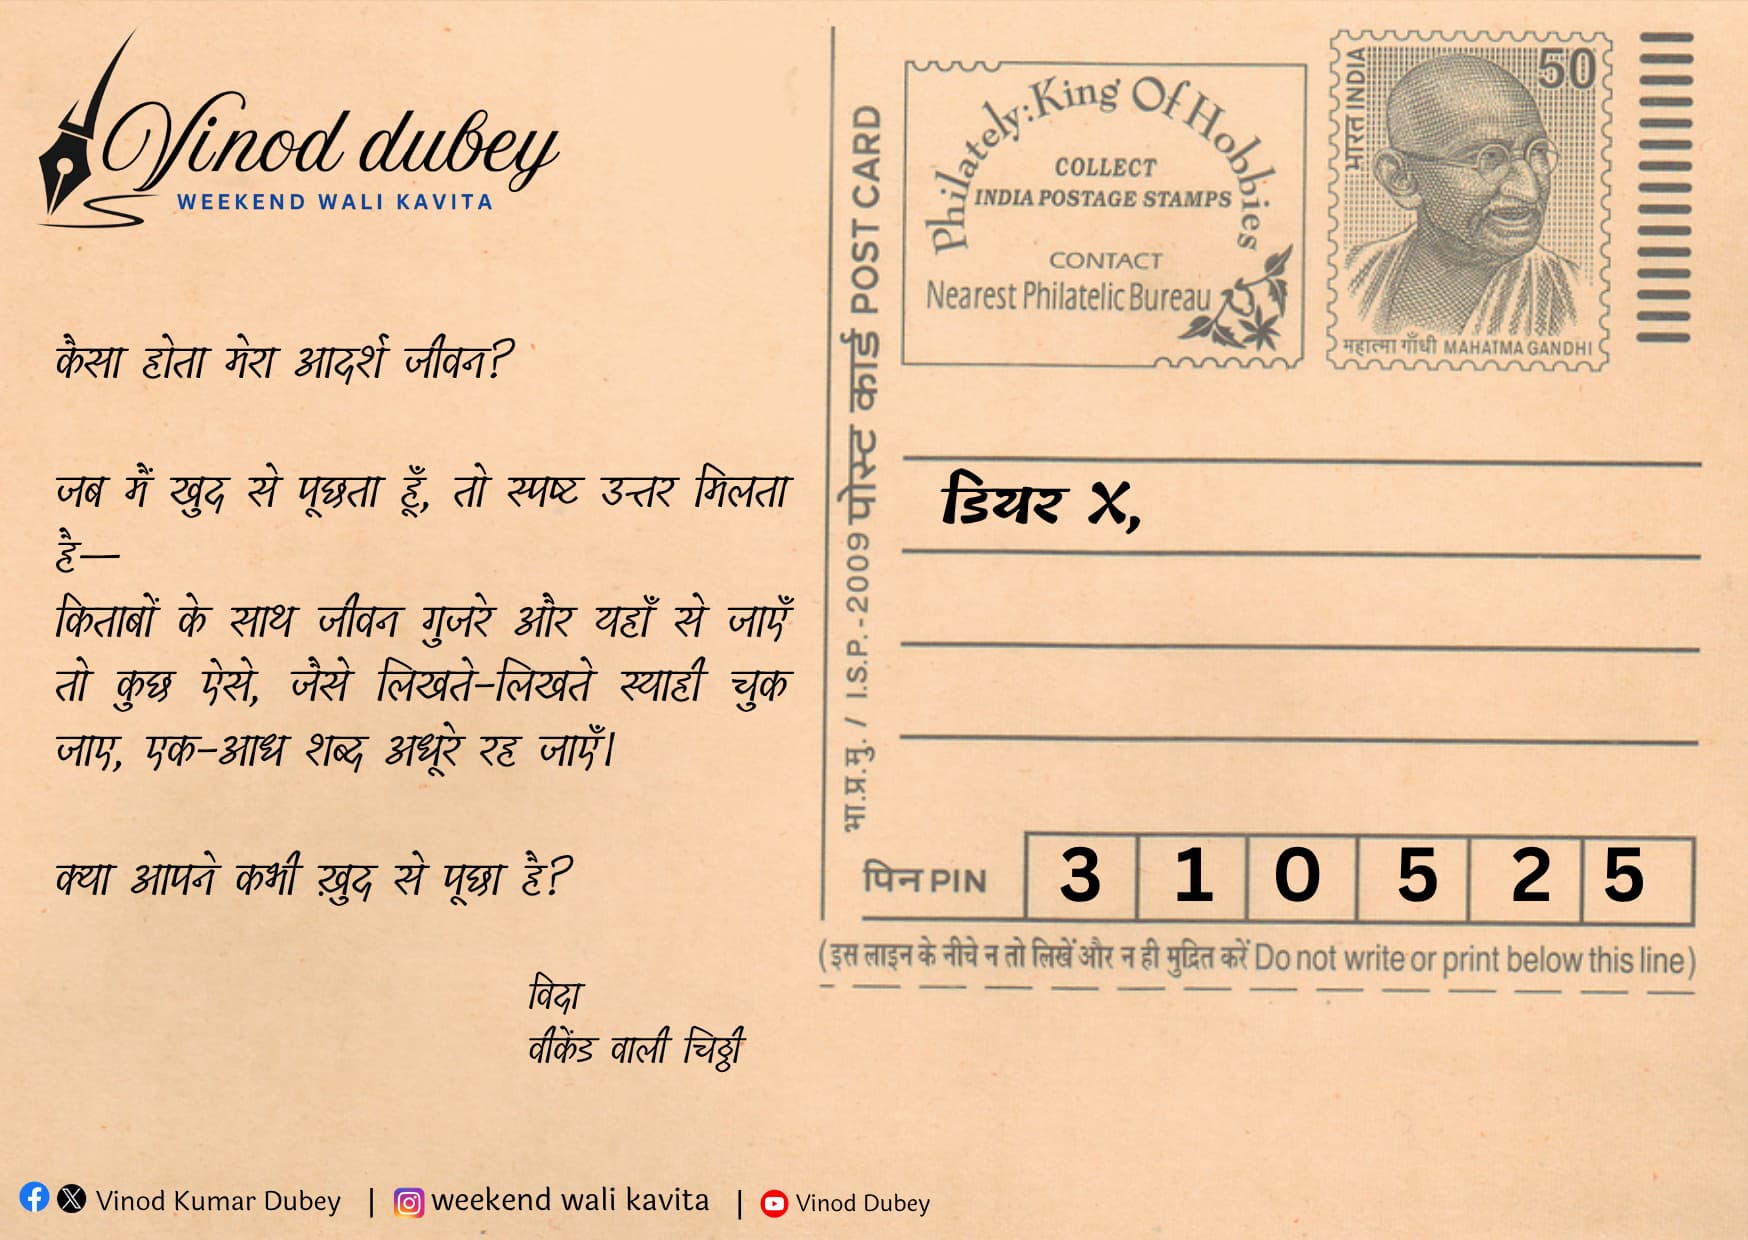 Vinod dubey
WEEKEND WALI KAVITA
कैसा होता मेरा आदर्श जीवन?
जब मैं खुद से पूछता हूँ, तो स्पष्ट उत्तर मिलता
है—
किताबों के साथ जीवन गुजरे और यहाँ से जाएँ
तो कुछ ऐसे, जैसे लिखते-लिखते स्याही चुक
जाए, एक-आध शब्द अधूरे रह जाएँ।
क्या आपने कभी ख़ुद से पूछा है?
विदा
वीकेंड वाली चिठ्ठी
भा.प्र.मु. / I.S.P.-2009 पोस्ट कार्ड POST CARD
Philately:King Of Hobbies
COLLECT
INDIA POSTAGE STAMPS
CONTACT
Nearest Philatelic Bureau
भारत INDIA
50
महात्मा गाँधी MAHATMA GANDHI
डियर X,
पिन PIN 3 1 0 5 2 5
(इस लाइन के नीचे न तो लिखें और न ही मुद्रित करें Do not write or print below this line)
Vinod Kumar Dubey | weekend wali kavita | Vinod Dubey